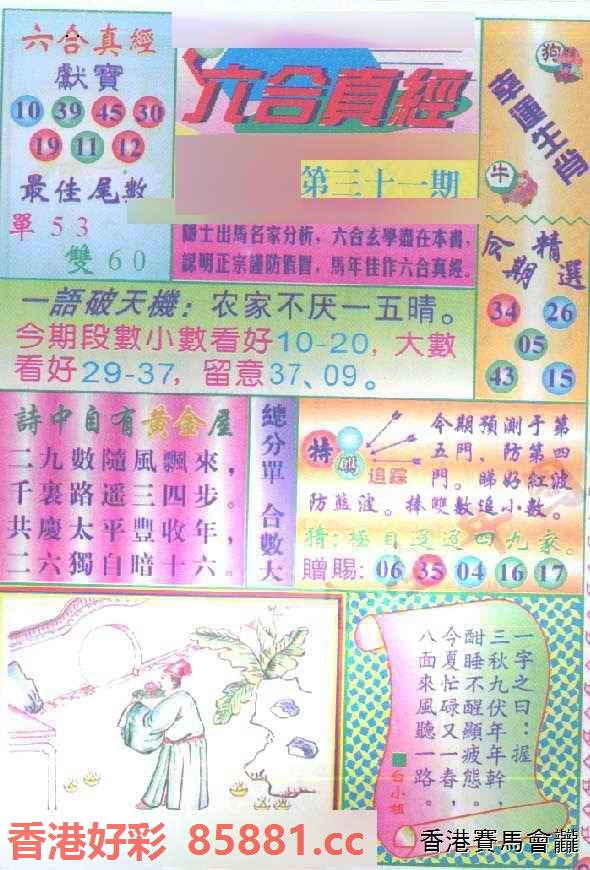 六合真經
獻寶
10 39 45 30
19 11 12
最佳尾數
單 5 3
雙 6 0
六合真經
第三十一期
隱士出馬名家分析，六合玄學盡在本書，
認明正宗謹防假冒，馬年佳作六合真經。
狗
幸運生肖
牛
今期精選
34 26
05
43 15
一語破天機：农家不厌一五晴。
今期段數小數看好10-20，大數
看好29-37，留意37、09。
詩中自有黃金屋
二九數隨風飄來，
千裏路遥三四步。
共慶太平豐收年，
二六獨自暗十六。
總分單 合數大
特碼
追踪
今期預測于第
五門、防第四
門。睇好紅波
防藍波。捧雙數追小數。
猜：極目遥遥四九家。
贈賜：06 35 04 16 17
一字之曰：握
三秋九伏年年幹，
酣睡不醒顯疲態。
今夏忙碌又一春，
八面來風聽一路。
白小姐
香港好彩 85881.cc
香港賽馬會